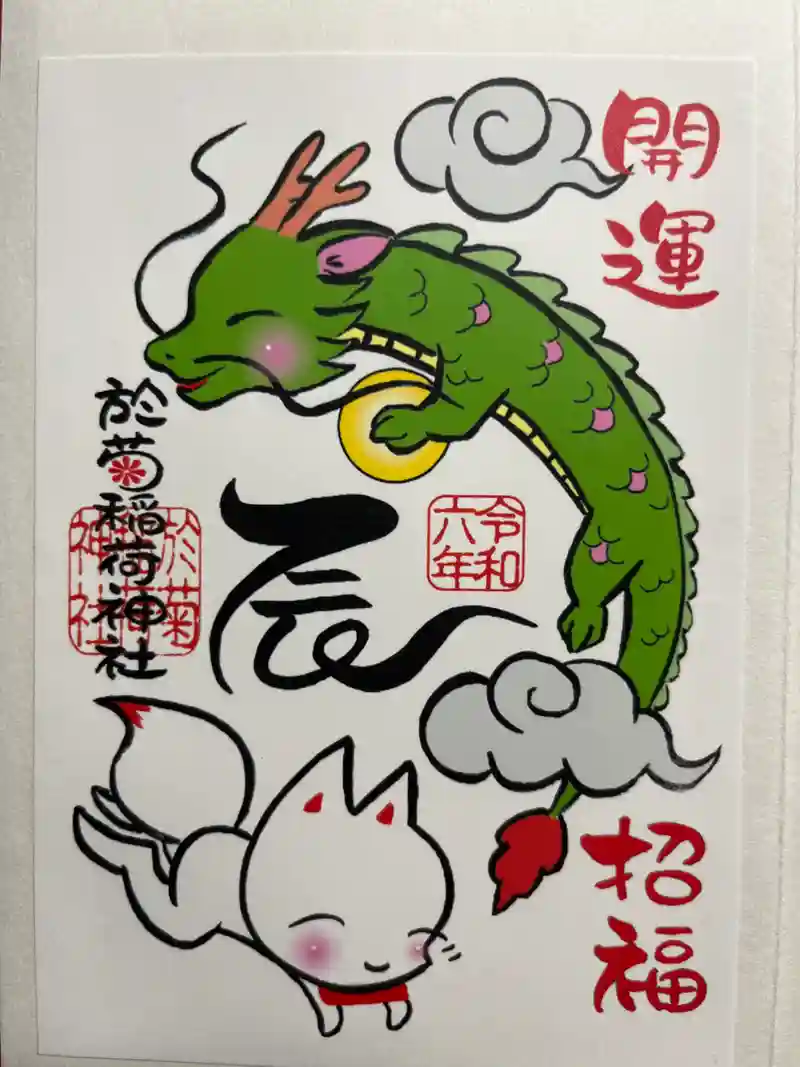 開運
招福
令和六年
辰
於菊稲荷神社
於菊稲荷神社